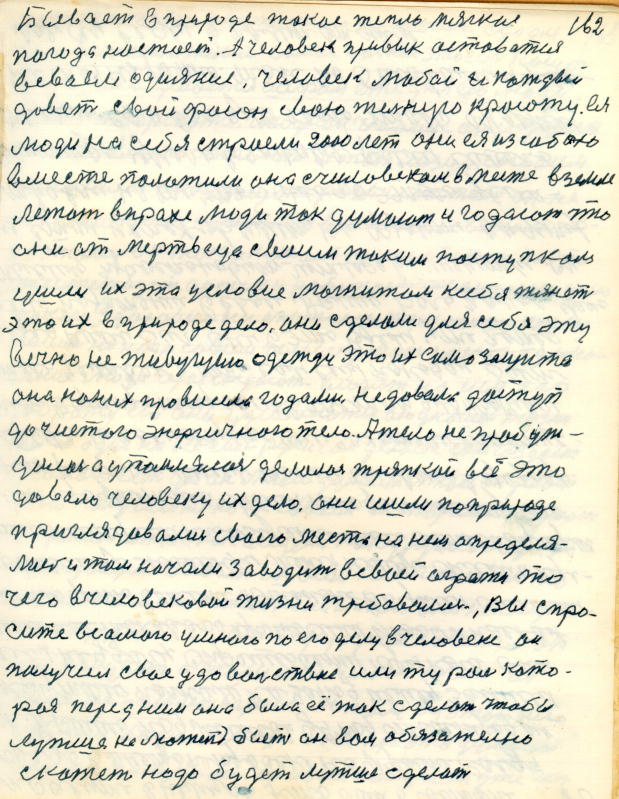 Бывает в природе такое тепло мягкая 162
погода настает. А человек привык оставатся
в своем одияние, человек любой и каждый
довет свой фасон свою тжнную красоту. Ея
люди на себя строели 2000 лет они ея из собою
вместе положили она с чиловеком вместе в земле
лежат в прахе люди так думают и гадают что
они от мертьвеца своим таким поступком
ушли их эта условие магнитом к себя тянет
это их в природе дело, они сделали для себя эту
вечно не живущию одежду это их само защита
она на них провисела годами недовала доступ
до чистого энергичного тело. А тело не пробуж-
далос а утомлялос делалос тряпкой всё это
довало человеку их дело, они шли по природе
приглядовалис своего места на нем определя-
лис и там начали заводит в своей ограти то
чего в человековой жизни требовалис, Вы спро-
сите в самого умного по его делу в человеке он
получил свое удовольствие или ту рол кото-
рая перед ним она была её так сделат чтобы
лутше не может быт он вам обязателно
скажет надо будет лутше сделат